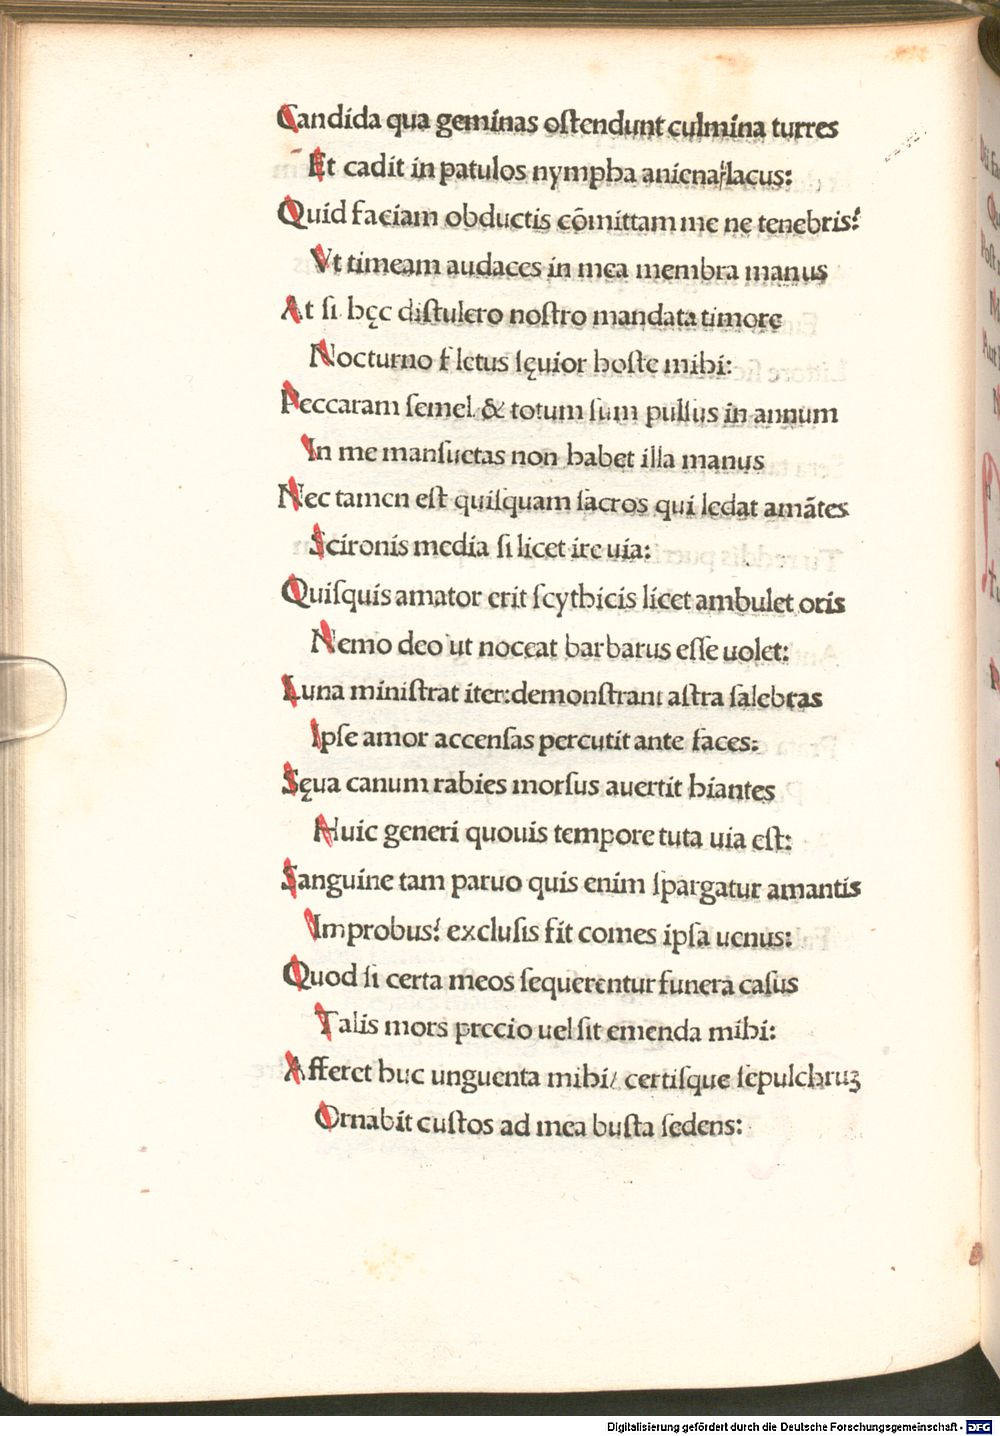 Candida qua geminas oſtendunt culmina turres
Et cadit in patulos nympha aniena lacus:
Quid faciam obductis cõmittam me ne tenebris?
Vt timeam audaces in mea membra manus
At ſi hęc diſtulero noſtro mandata timore
Nocturno fletus ſęuior hoſte mihi:
Peccaram ſemel & totum ſum pulſus in annum
In me manſuetas non habet illa manus
Nec tamen eſt quiſquam ſacros qui ledat amãtes
Scironis media ſi licet ire uia:
Quiſquis amator erit ſcythicis licet ambulet oris
Nemo deo ut noceat barbarus eſſe uolet:
Luna miniſtrat iter: demonſtrant aſtra ſalebras
Ipſe amor accenſas percutit ante faces:
Sęua canum rabies morſus auertit hiantes
Huic generi quouis tempore tuta uia eſt:
Sanguine tam paruo quis enim ſpargatur amantis
Improbus? excluſis fit comes ipſa uenus:
Quod ſi certa meos ſequerentur funera caſus
Talis mors precio uel ſit emenda mihi:
Afferet huc unguenta mihi/ certiſque ſepulchruꝫ
Ornabit cuſtos ad mea buſta ſedens:
Digitalisierung gefördert durch die Deutsche Forschungsgemeinschaft - DFG